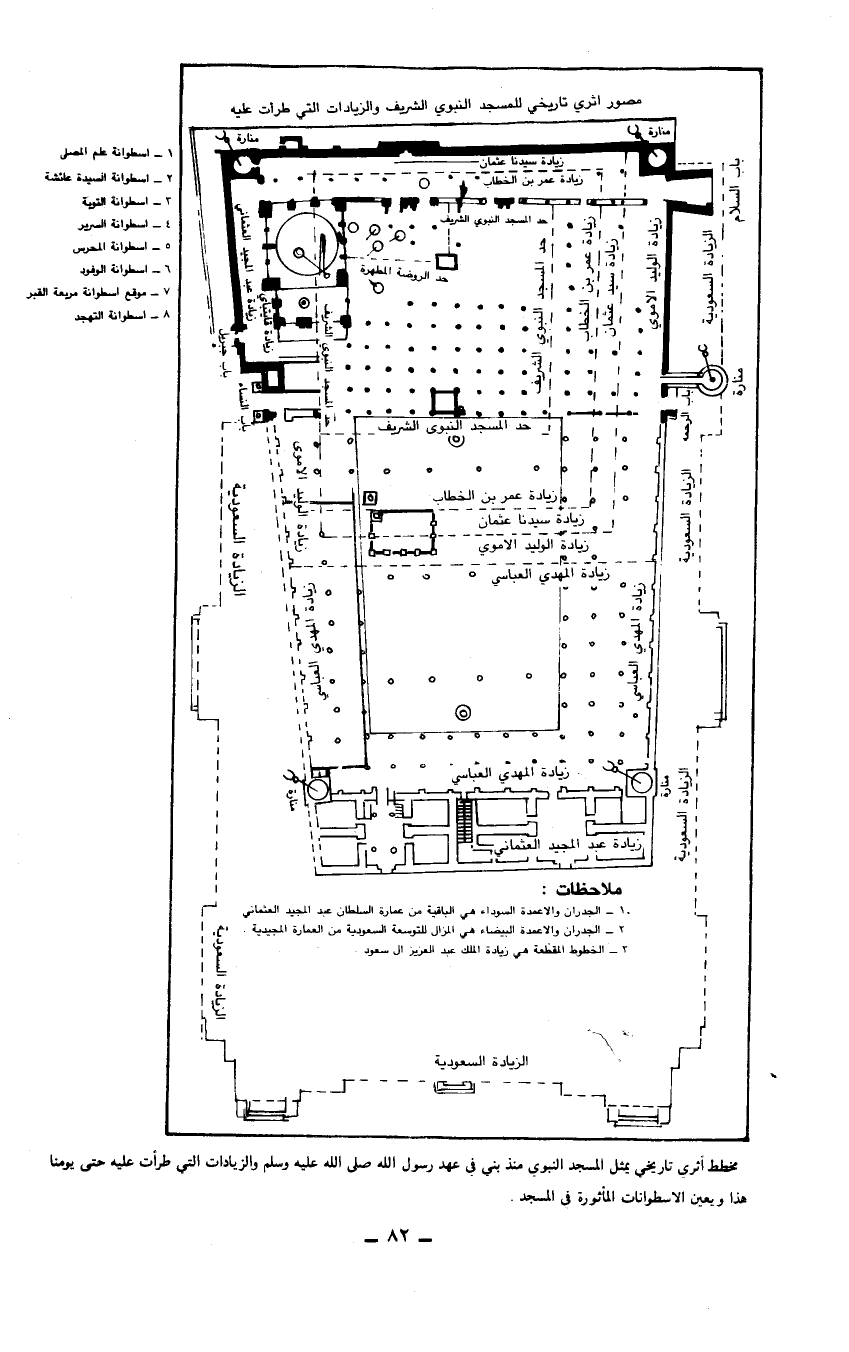 مصور اثري تاريخي للمسجد النبوي الشريف والزيادات التي طرأت عليه
١ – اسطوانة علم المصلى
٢ – اسطوانة السيدة عائشة
٣ – اسطوانة التوبة
٤ – اسطوانة السرير
٥ – اسطوانة المحرس
٦ – اسطوانة الوفود
٧ – موقع اسطوانة مربعة القبر
٨ – اسطوانة التهجد
منارة
منارة
باب السلام
زيادة سيدنا عثمان
زيادة عمر بن الخطاب
حد المسجد النبوي الشريف
حد الروضة المطهرة
زيادة عبد المجيد العثماني
زيادة قايتباي
حد المسجد النبوي الشريف
حد المسجد النبوي الشريف
زيادة عمر بن الخطاب
زيادة سيد عثمان
زيادة الوليد الاموي
الزيادة السعودية
باب جبريل
باب النساء
منارة
باب الرحمه
حد المسجد النبوى الشريف
زيادة الوليد الاموى
الزيادة السعودية
الزيادة السعودية
زيادة عمر بن الخطاب
زيادة سيدنا عثمان
زيادة الوليد الاموي
زيادة المهدي العباسي
زيادة المهدي العباسي
زيادة المهدي العباسي
زيادة المهدي العباسي
منارة
منارة
الزيادة السعودية
زيادة عبد المجيد العثماني
ملاحظات :
١ – الجدران والاعمدة السوداء هي الباقية من عمارة السلطان عبد المجيد العثماني
٢ – الجدران والاعمدة البيضاء هي المزال للتوسعة السعودية من العمارة المجيدية .
٣ – الخطوط المقطعة هي زيادة الملك عبد العزيز ال سعود
الزيادة السعودية
الزيادة السعودية
مخطط أثري تاريخي يمثل المسجد النبوي منذ بني في عهد رسول الله صلى الله عليه وسلم والزيادات التي طرأت عليه حتى يومنا
هذا ويعين الاسطوانات المأثورة في المسجد .
– ٨٢ –